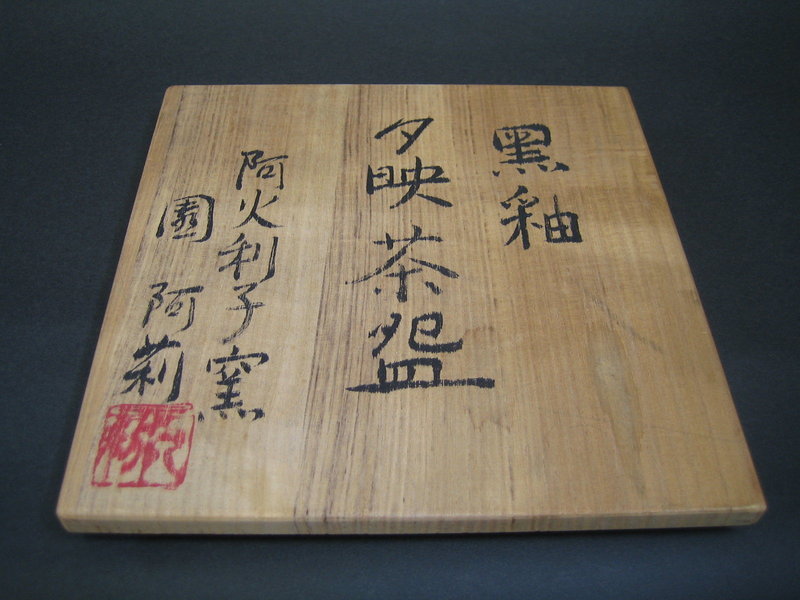 黒釉
夕映茶盌
阿火利子窯
園阿莉